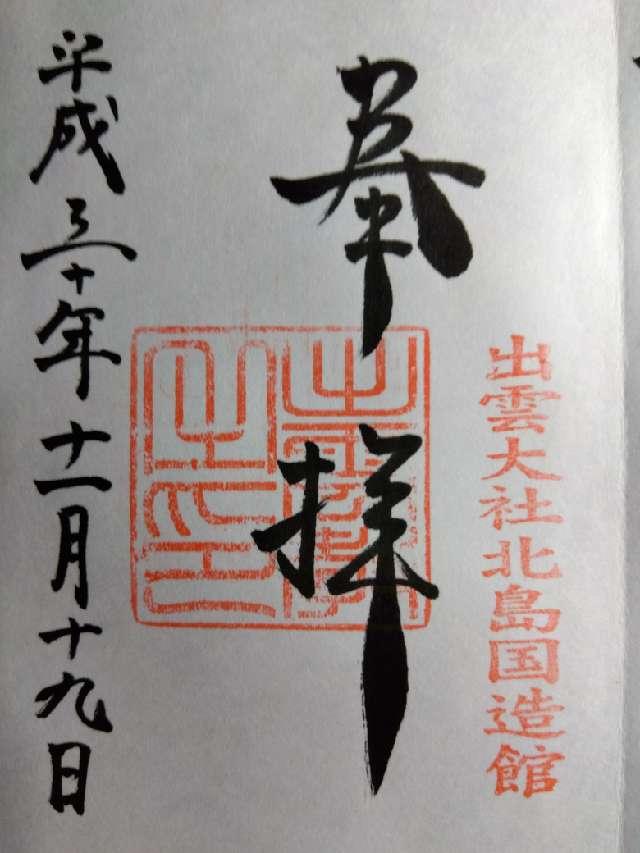 出雲大社北島国造館
奉拝
平成三十年十一月十九日